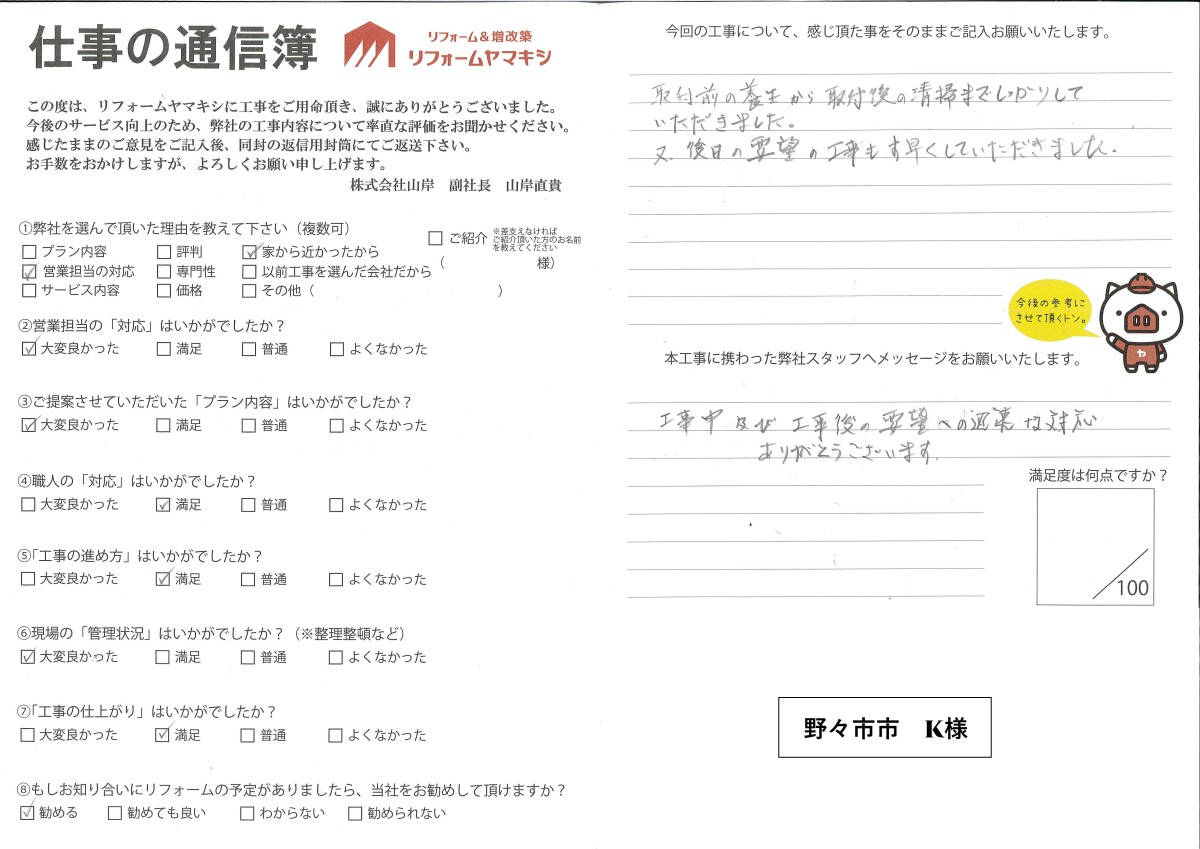 仕事の通信簿
リフォーム&増改築
リフォームヤマキシ
この度は、リフォームヤマキシに工事をご用命頂き、誠にありがとうございました。
今後のサービス向上のため、弊社の工事内容について率直な評価をお聞かせください。
感じたままのご意見をご記入後、同封の返信用封筒にてご返送下さい。
お手数をおかけしますが、よろしくお願い申し上げます。
株式会社山岸 副社長 山岸直貴
①弊社を選んで頂いた理由を教えて下さい（複数可）
□プラン内容 □評判 ☑家から近かったから
☑営業担当の対応 □専門性 □以前工事を選んだ会社だから
□サービス内容 □価格 □その他（ ）
□ご紹介
※差支えなければ
ご紹介頂いた方のお名前
を教えてください
（ 様）
②営業担当の「対応」はいかがでしたか？
☑大変良かった □満足 □普通 □よくなかった
③ご提案させていただいた「プラン内容」はいかがでしたか？
☑大変良かった □満足 □普通 □よくなかった
④職人の「対応」はいかがでしたか？
□大変良かった ☑満足 □普通 □よくなかった
⑤「工事の進め方」はいかがでしたか？
□大変良かった ☑満足 □普通 □よくなかった
⑥現場の「管理状況」はいかがでしたか？（※整理整頓など）
☑大変良かった □満足 □普通 □よくなかった
⑦「工事の仕上がり」はいかがでしたか？
□大変良かった ☑満足 □普通 □よくなかった
⑧もしお知り合いにリフォームの予定がありましたら、当社をお勧めして頂けますか？
☑勧める □勧めても良い □わからない □勧められない
今回の工事について、感じ頂た事をそのままご記入お願いいたします。
取付前の養生から取付後の清掃までしっかりして
いただきました。
又、後日の要望の工事もす早くしていただきました。
今後の参考に
させて頂くトン。
ヤ
本工事に携わった弊社スタッフへメッセージをお願いいたします。
工事中及び工事後の要望への迅速な対応
ありがとうございます。
満足度は何点ですか？
/100
野々市市 K様